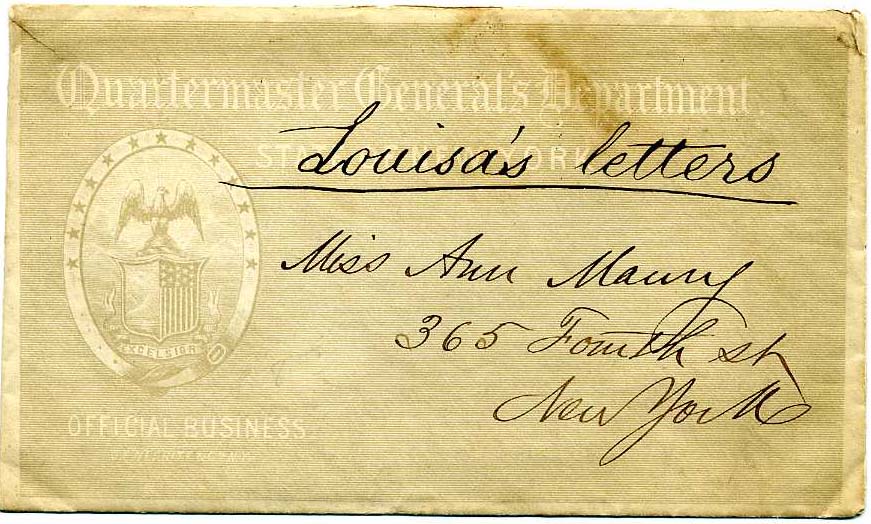 Quartermaster General's Department,
STATE OF NEW YORK
Louisa's letters
Miss Ann Maury
365 Fourth st
New York
EXCELSIOR
OFFICIAL BUSINESS